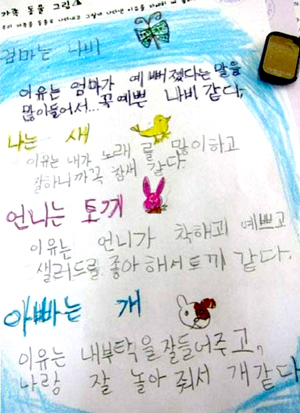 가족 동물 그림
엄마는 나비
이유는 엄마가 예뻐졌다는 말을
많이들어서... 꼭예쁜 나비 같다,
나는 새
이유는 내가 노래를 많이하고
잘하니까꼭 참새 같다.
언니는 토끼
이유는 언니가 착하고 예쁘고
샐러드를 좋아해서토끼 같다.
아빠는 개
이유는 내부탁을잘들어주고,
나랑 잘 놀아 줘서 개같다